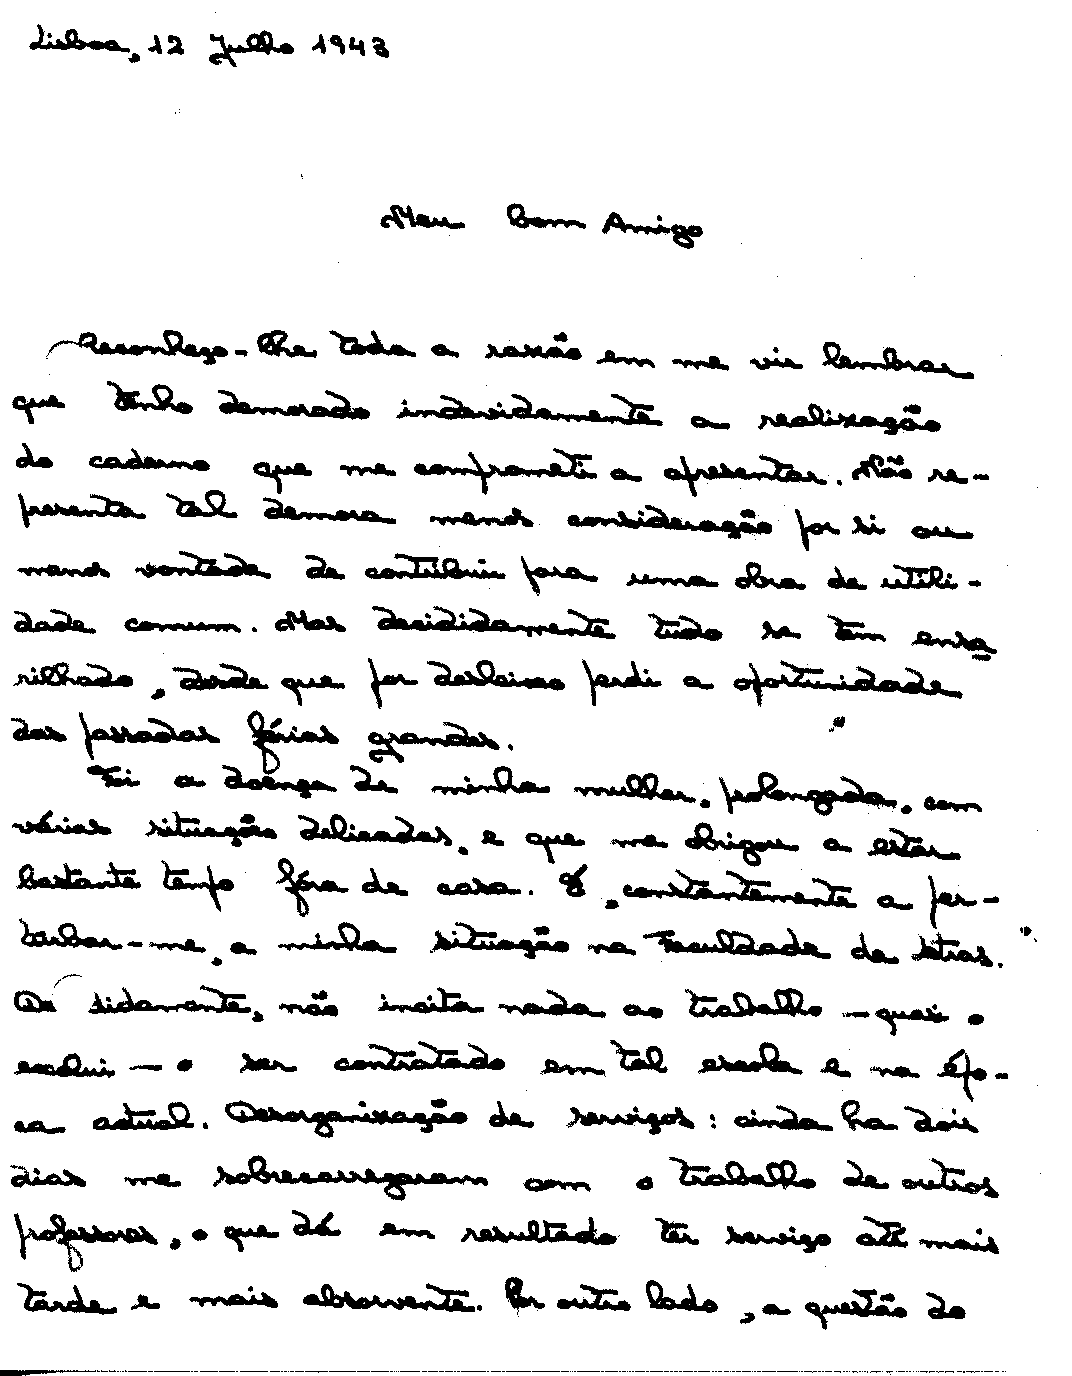 Lisboa, 12 Julho 1943
Meu bom Amigo
Reconheço-lhe toda a razão em me vir lembrar
que tenho demorado indevidamente a realização
do caderno que me comprometi a apresentar. Não re-
presenta tal demora menos consideração por si ou
menos vontade de contribuir para uma obra de utili-
dade comum. Mas decididamente tudo se tem ensa
rilhado, desde que por desleixo perdi a oportunidade
das passadas férias grandes.
Foi a doença de minha mulher, prolongada, com
várias situações delicadas, e que me obrigou a estar
bastante tempo fóra de casa. É, constantemente a per-
turbar-me, a minha situação na Faculdade de Letras.
Decididamente, não incita nada ao trabalho — quasi o
exclui — o ser contratado em tal escola e na épo-
ca actual. Desorganização de serviços: ainda ha dois
dias me sobrecarregaram com o trabalho de outros
professores, o que dá em resultado ter serviço até mais
tarde e mais absorvente. Por outro lado, a questão do